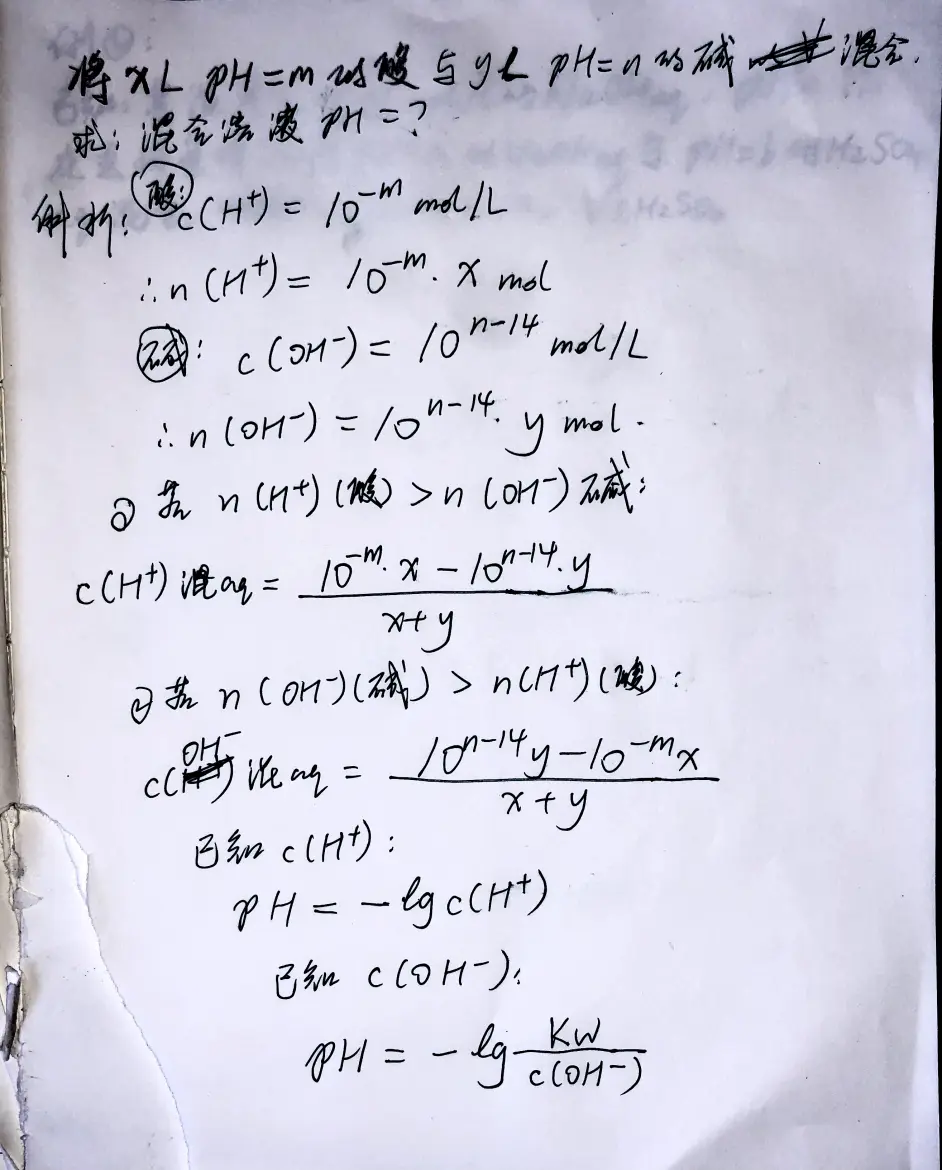 将 xL pH=m 的酸与 yL pH=n 的碱 混合.
求: 混合溶液 pH=?
解析: 酸: c(H⁺) = 10⁻ᵐ mol/L
∴n(H⁺) = 10⁻ᵐ·x mol
碱: c(OH⁻) = 10ⁿ⁻¹⁴ mol/L
∴n(OH⁻) = 10ⁿ⁻¹⁴·y mol.
① 若 n(H⁺)(酸) > n(OH⁻)碱:
c(H⁺)混aq = (10⁻ᵐ·x − 10ⁿ⁻¹⁴·y)/(x+y)
② 若 n(OH⁻)(碱) > n(H⁺)(酸):
c(OH⁻)混aq = (10ⁿ⁻¹⁴y − 10⁻ᵐx)/(x+y)
已知 c(H⁺):
pH = −lg c(H⁺)
已知 c(OH⁻):
pH = −lg Kw/c(OH⁻)